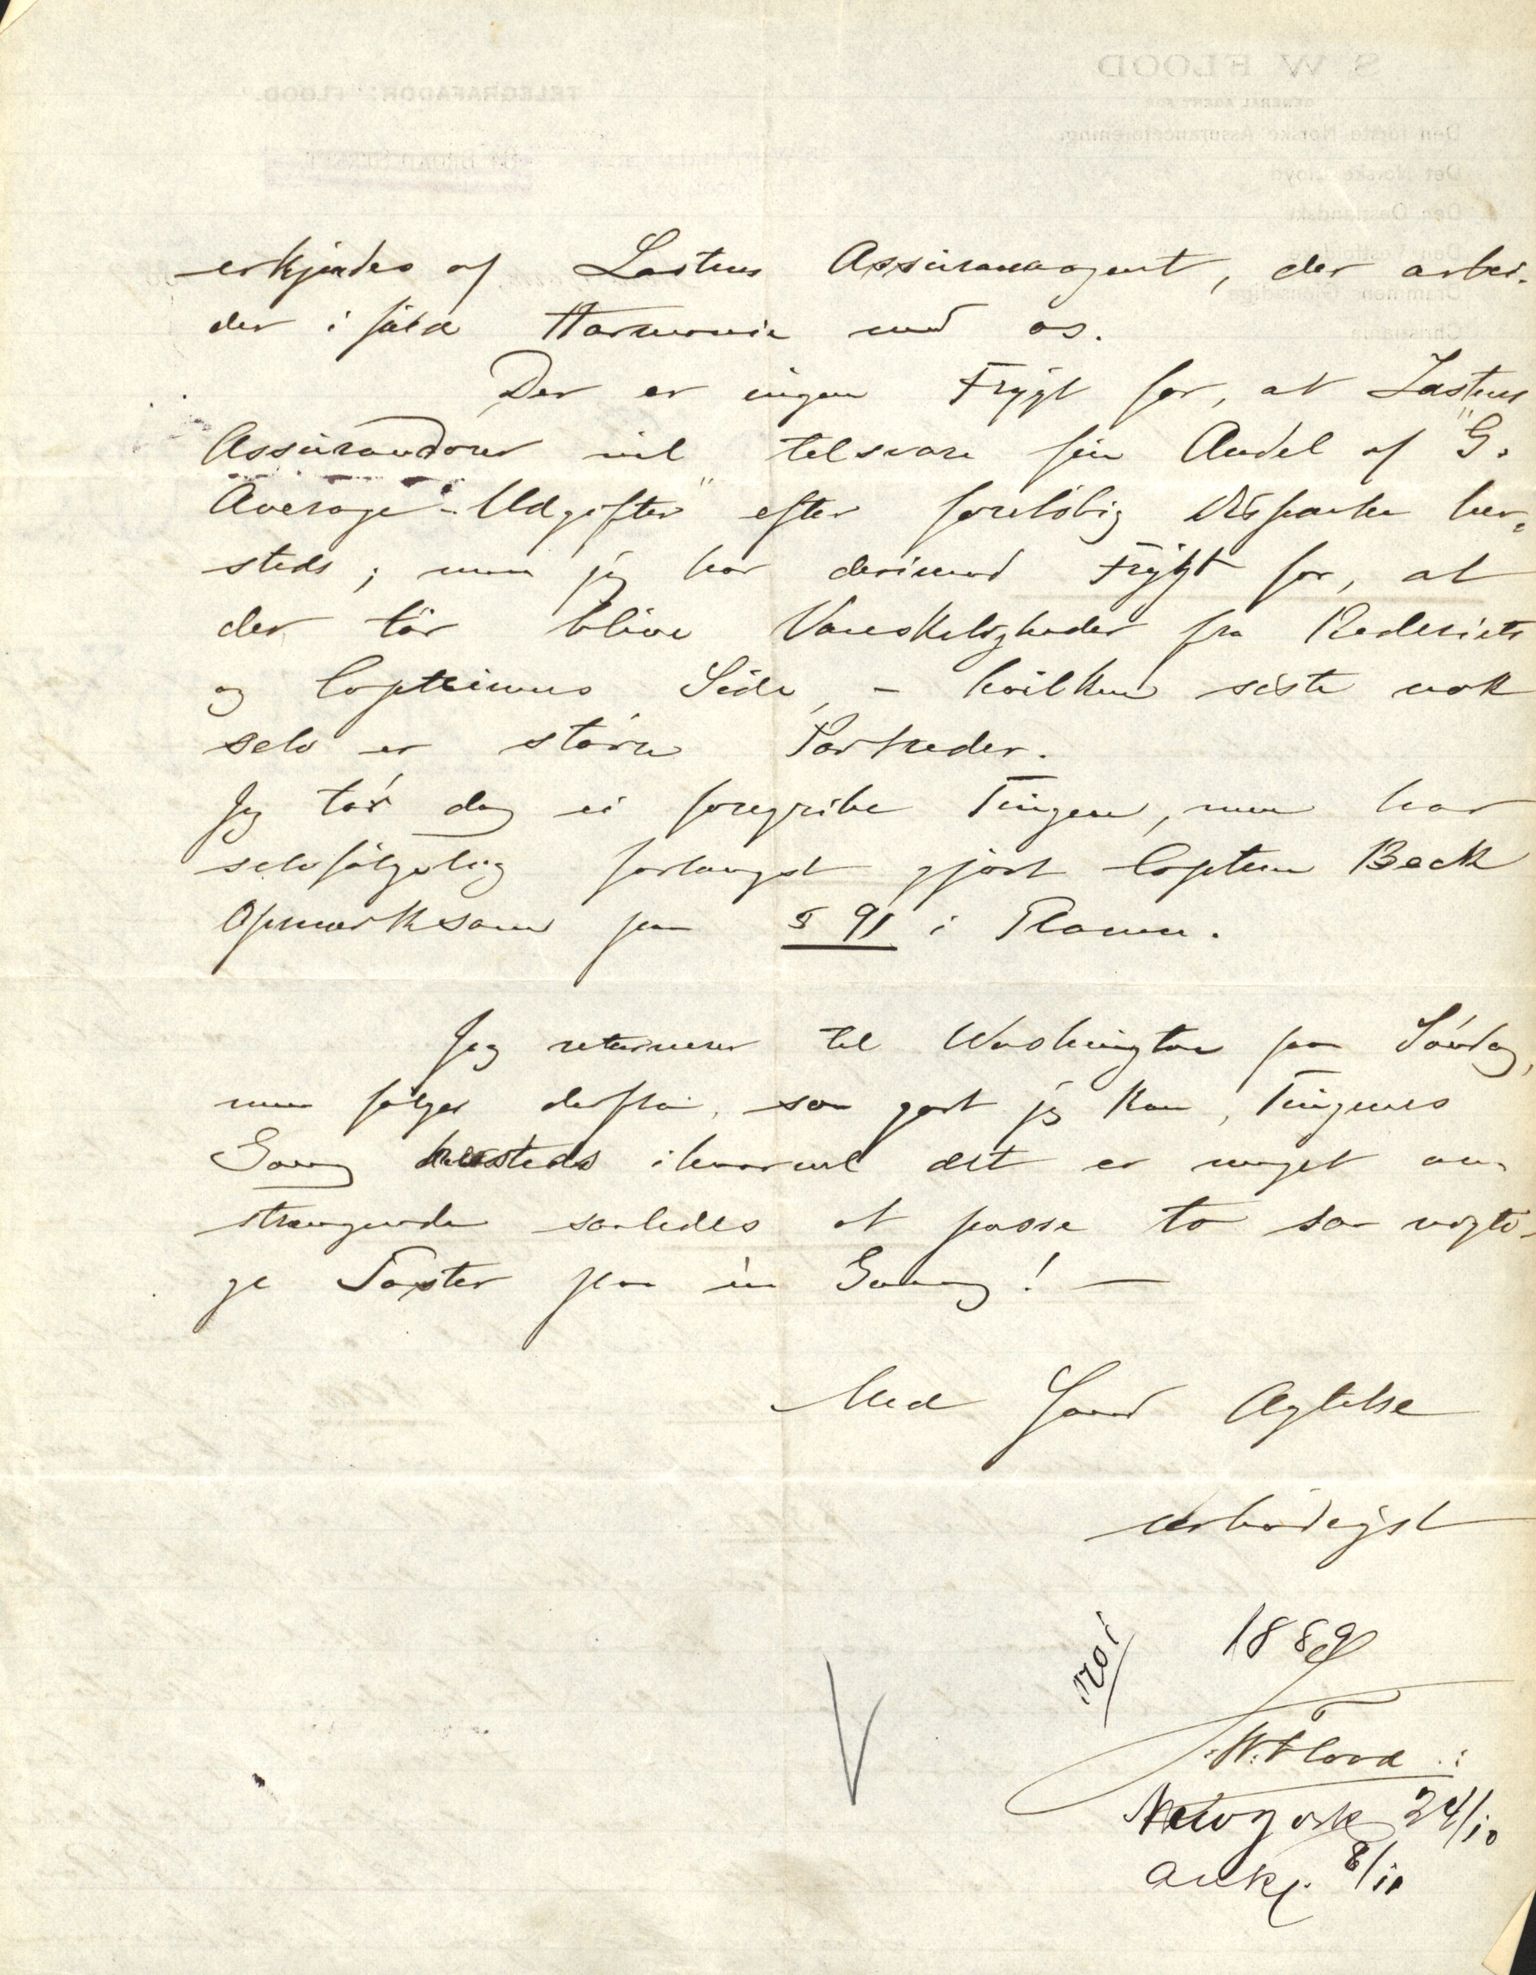 erkjendes af Lastens Assuranceagent, der arbei-
der i fuld Harmonie med os.
Der er ingen Frygt for, at Lastens
Assurandører vil tilsvare sin Andel af "G.
Average-Udgifter" efter foreløbig Dispache her-
steds; men jeg har derimod Frygt for, at
der tør blive Vanskeligheder fra Rederiets
og Capteinens Side, - hvilken siste nok
selv er større Partreder.
Jeg tør dog ei foregribe Tingen, men har
selvfølgelig forlangst gjort Captein Beck
Opmærksom paa § 91 i Planen.
Jeg returnerer til Washington paa Søndag,
men følger derfra, saa godt jeg kan, Tingenes
Gang hersteds ihvorvel det er meget an-
strængende saaledes at passe to saa vigti-
ge Poster paa én Gang! -
Med sand Agtelse
ærbødigst
1889
S. W. Flood
New York 24/10
ank. 8/11